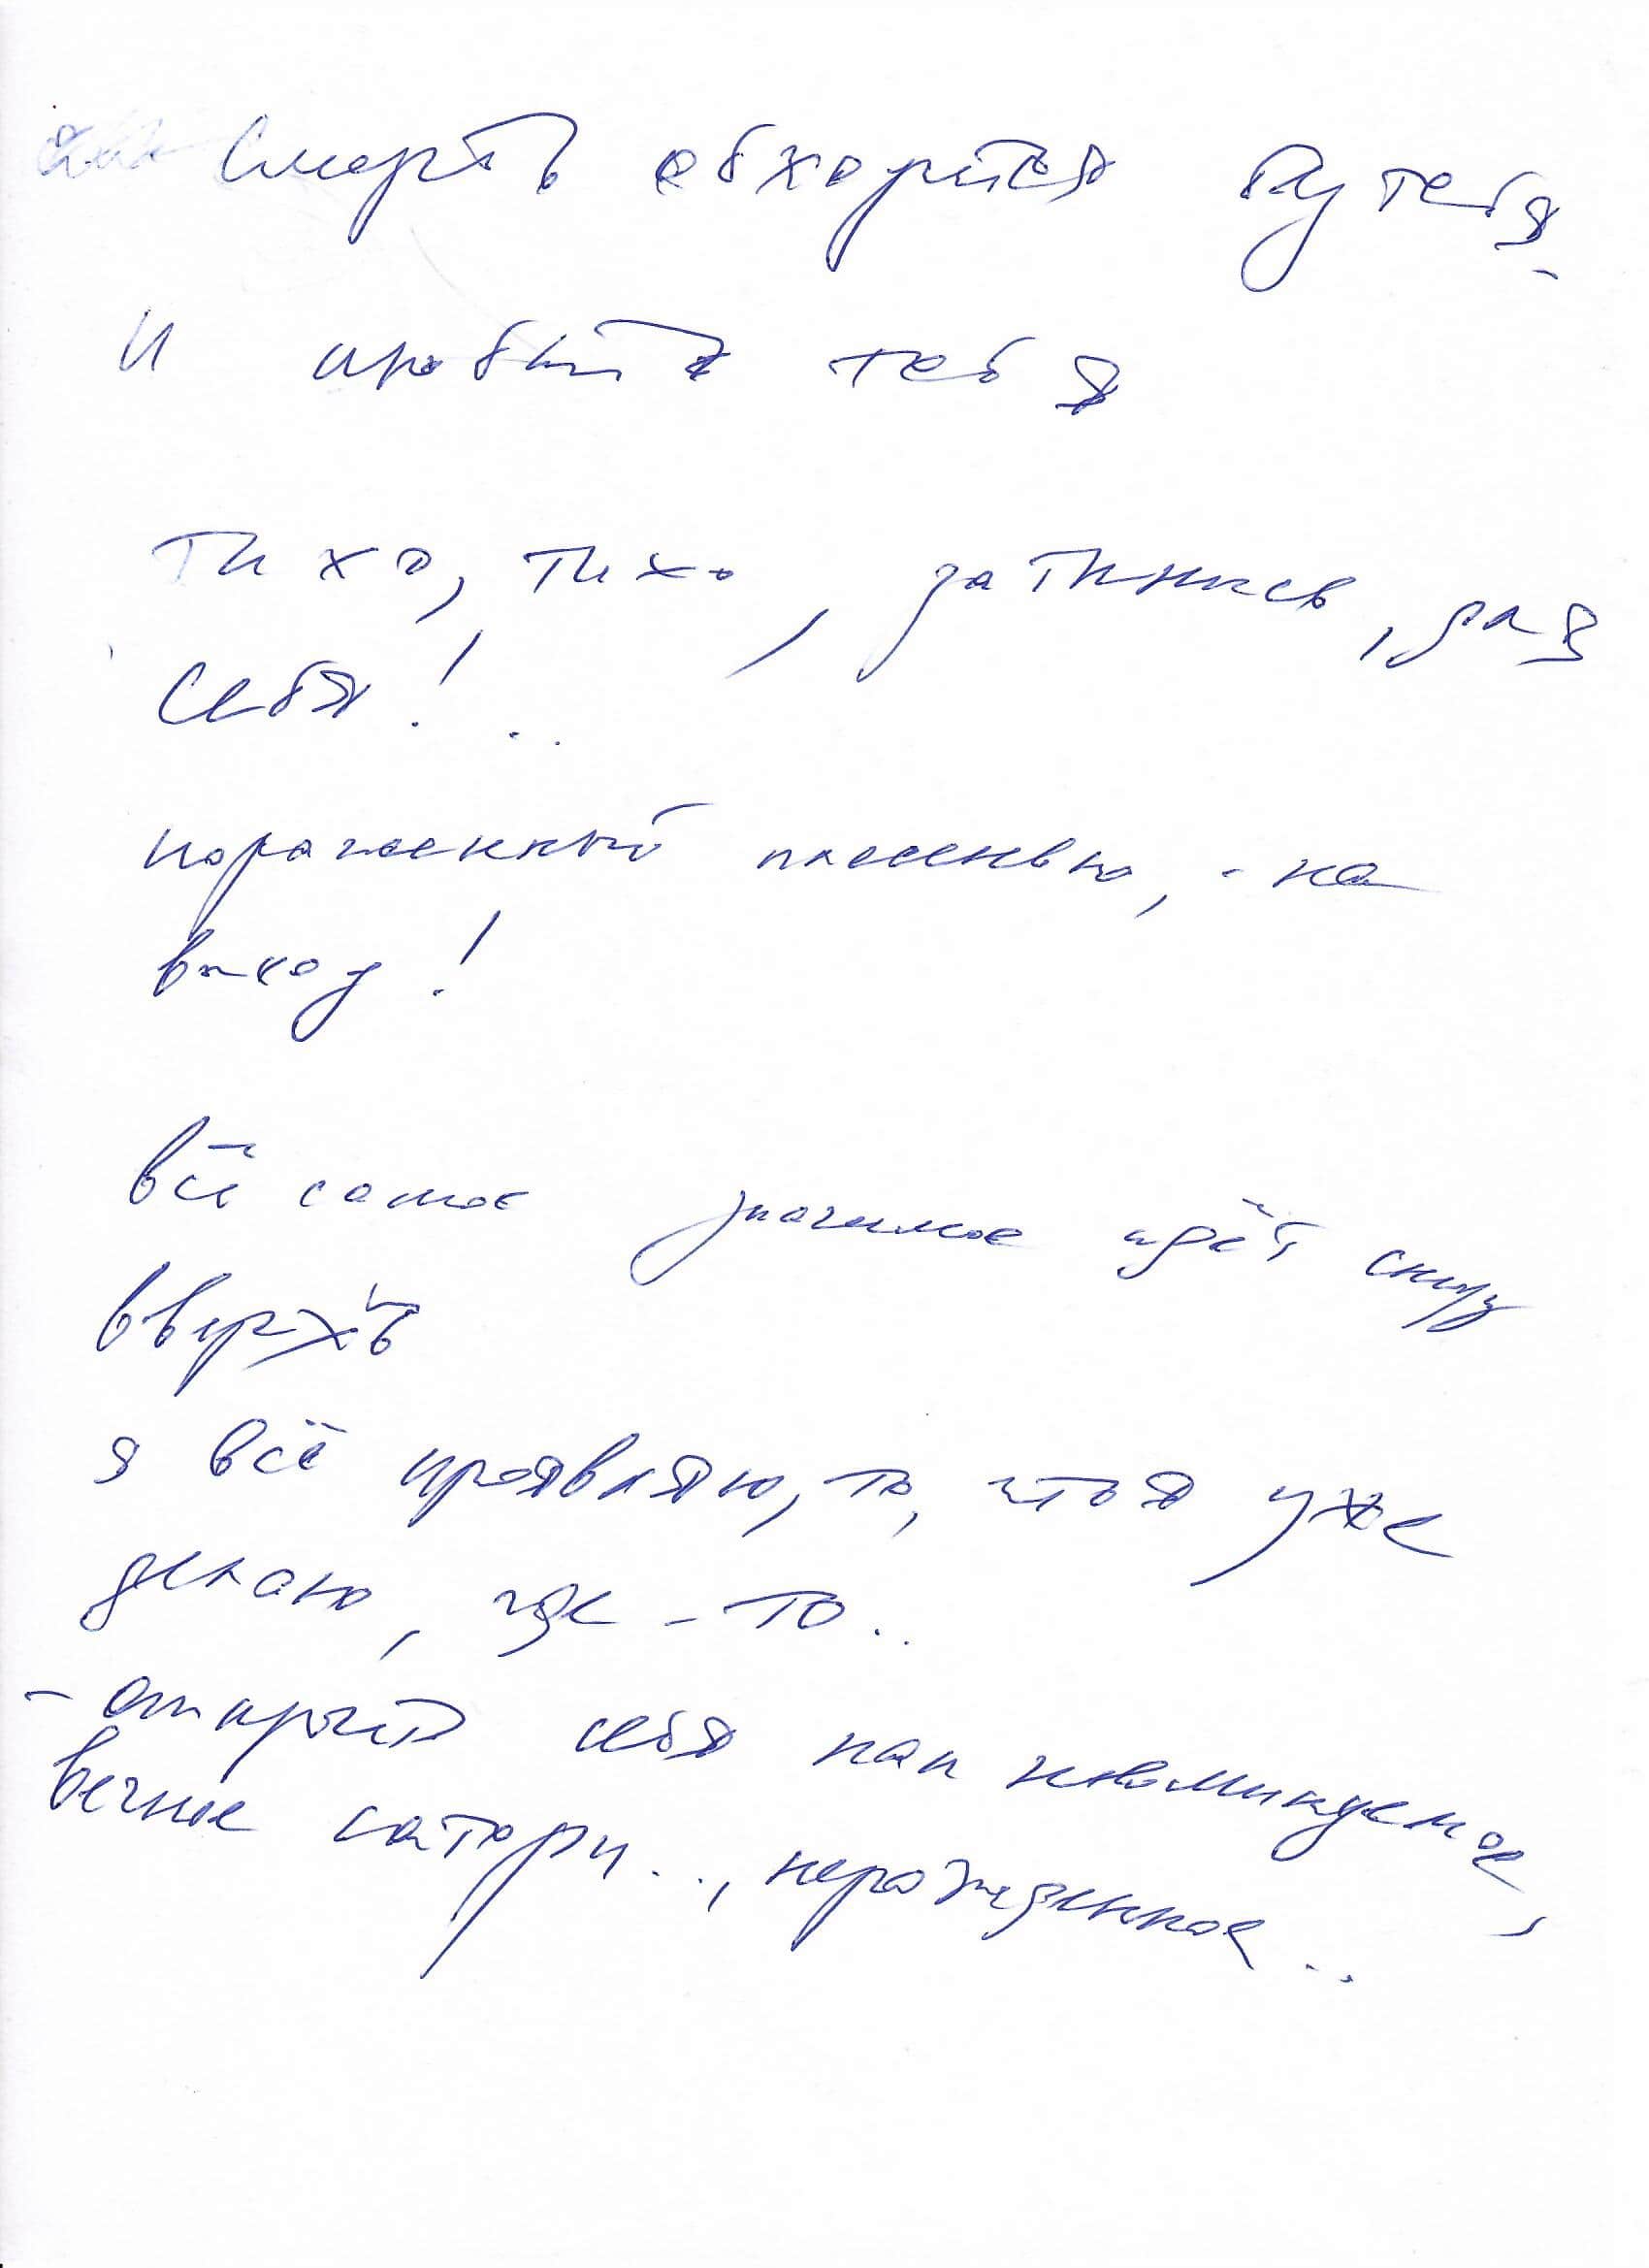 Смерть обходится без тебя -
и простит тебя
тихо, тихо, затинись, для
себя!..
пораженный плесенью, - на
выход!
всё самое значимое идёт снизу
вверхъ
я всё проявляю, то, что я уже
делаю, где-то..
- открыть себя как неминуемое,
вечное сатори.., нерожденное..